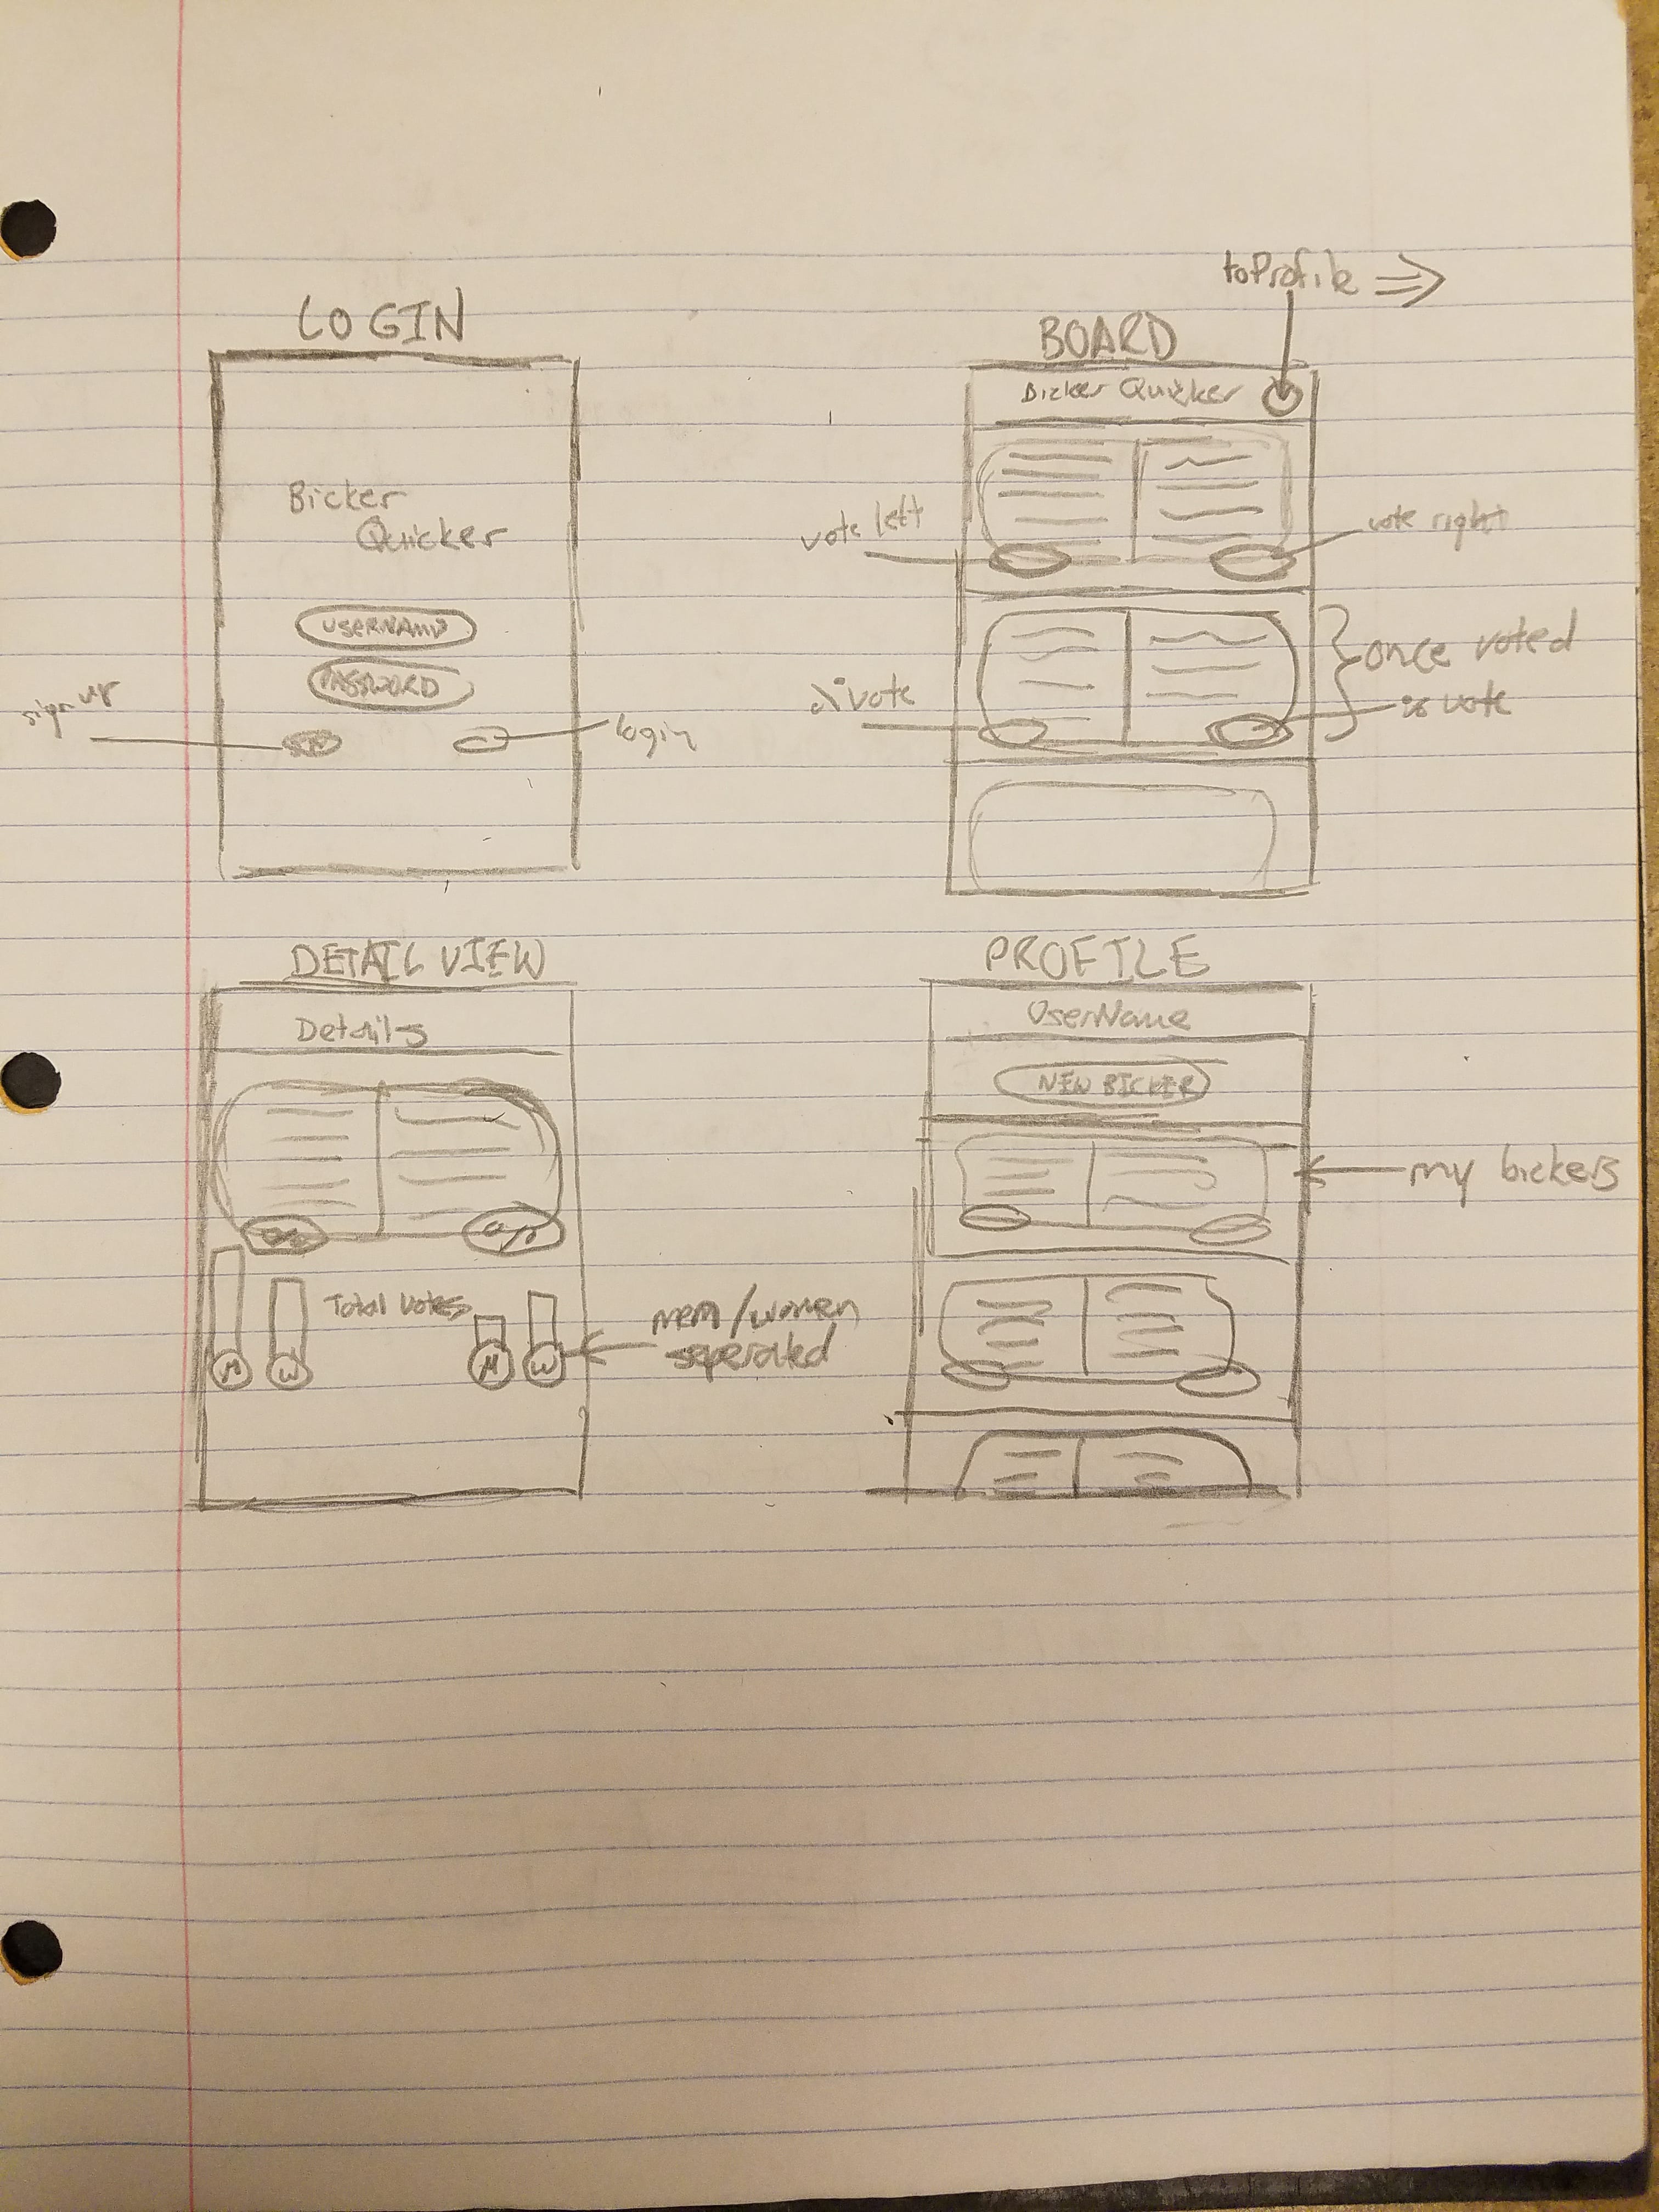 LOGIN
Bicker
Quicker
USERNAME
PASSWORD
sign up
login
toProfile
BOARD
Bicker Quicker
vote left
vote right
once voted
vote
vote
DETAIL VIEW
Details
Total Votes
M
W
M
W
men/women
seperated
PROFILE
UserName
NEW BICKER
my bickers